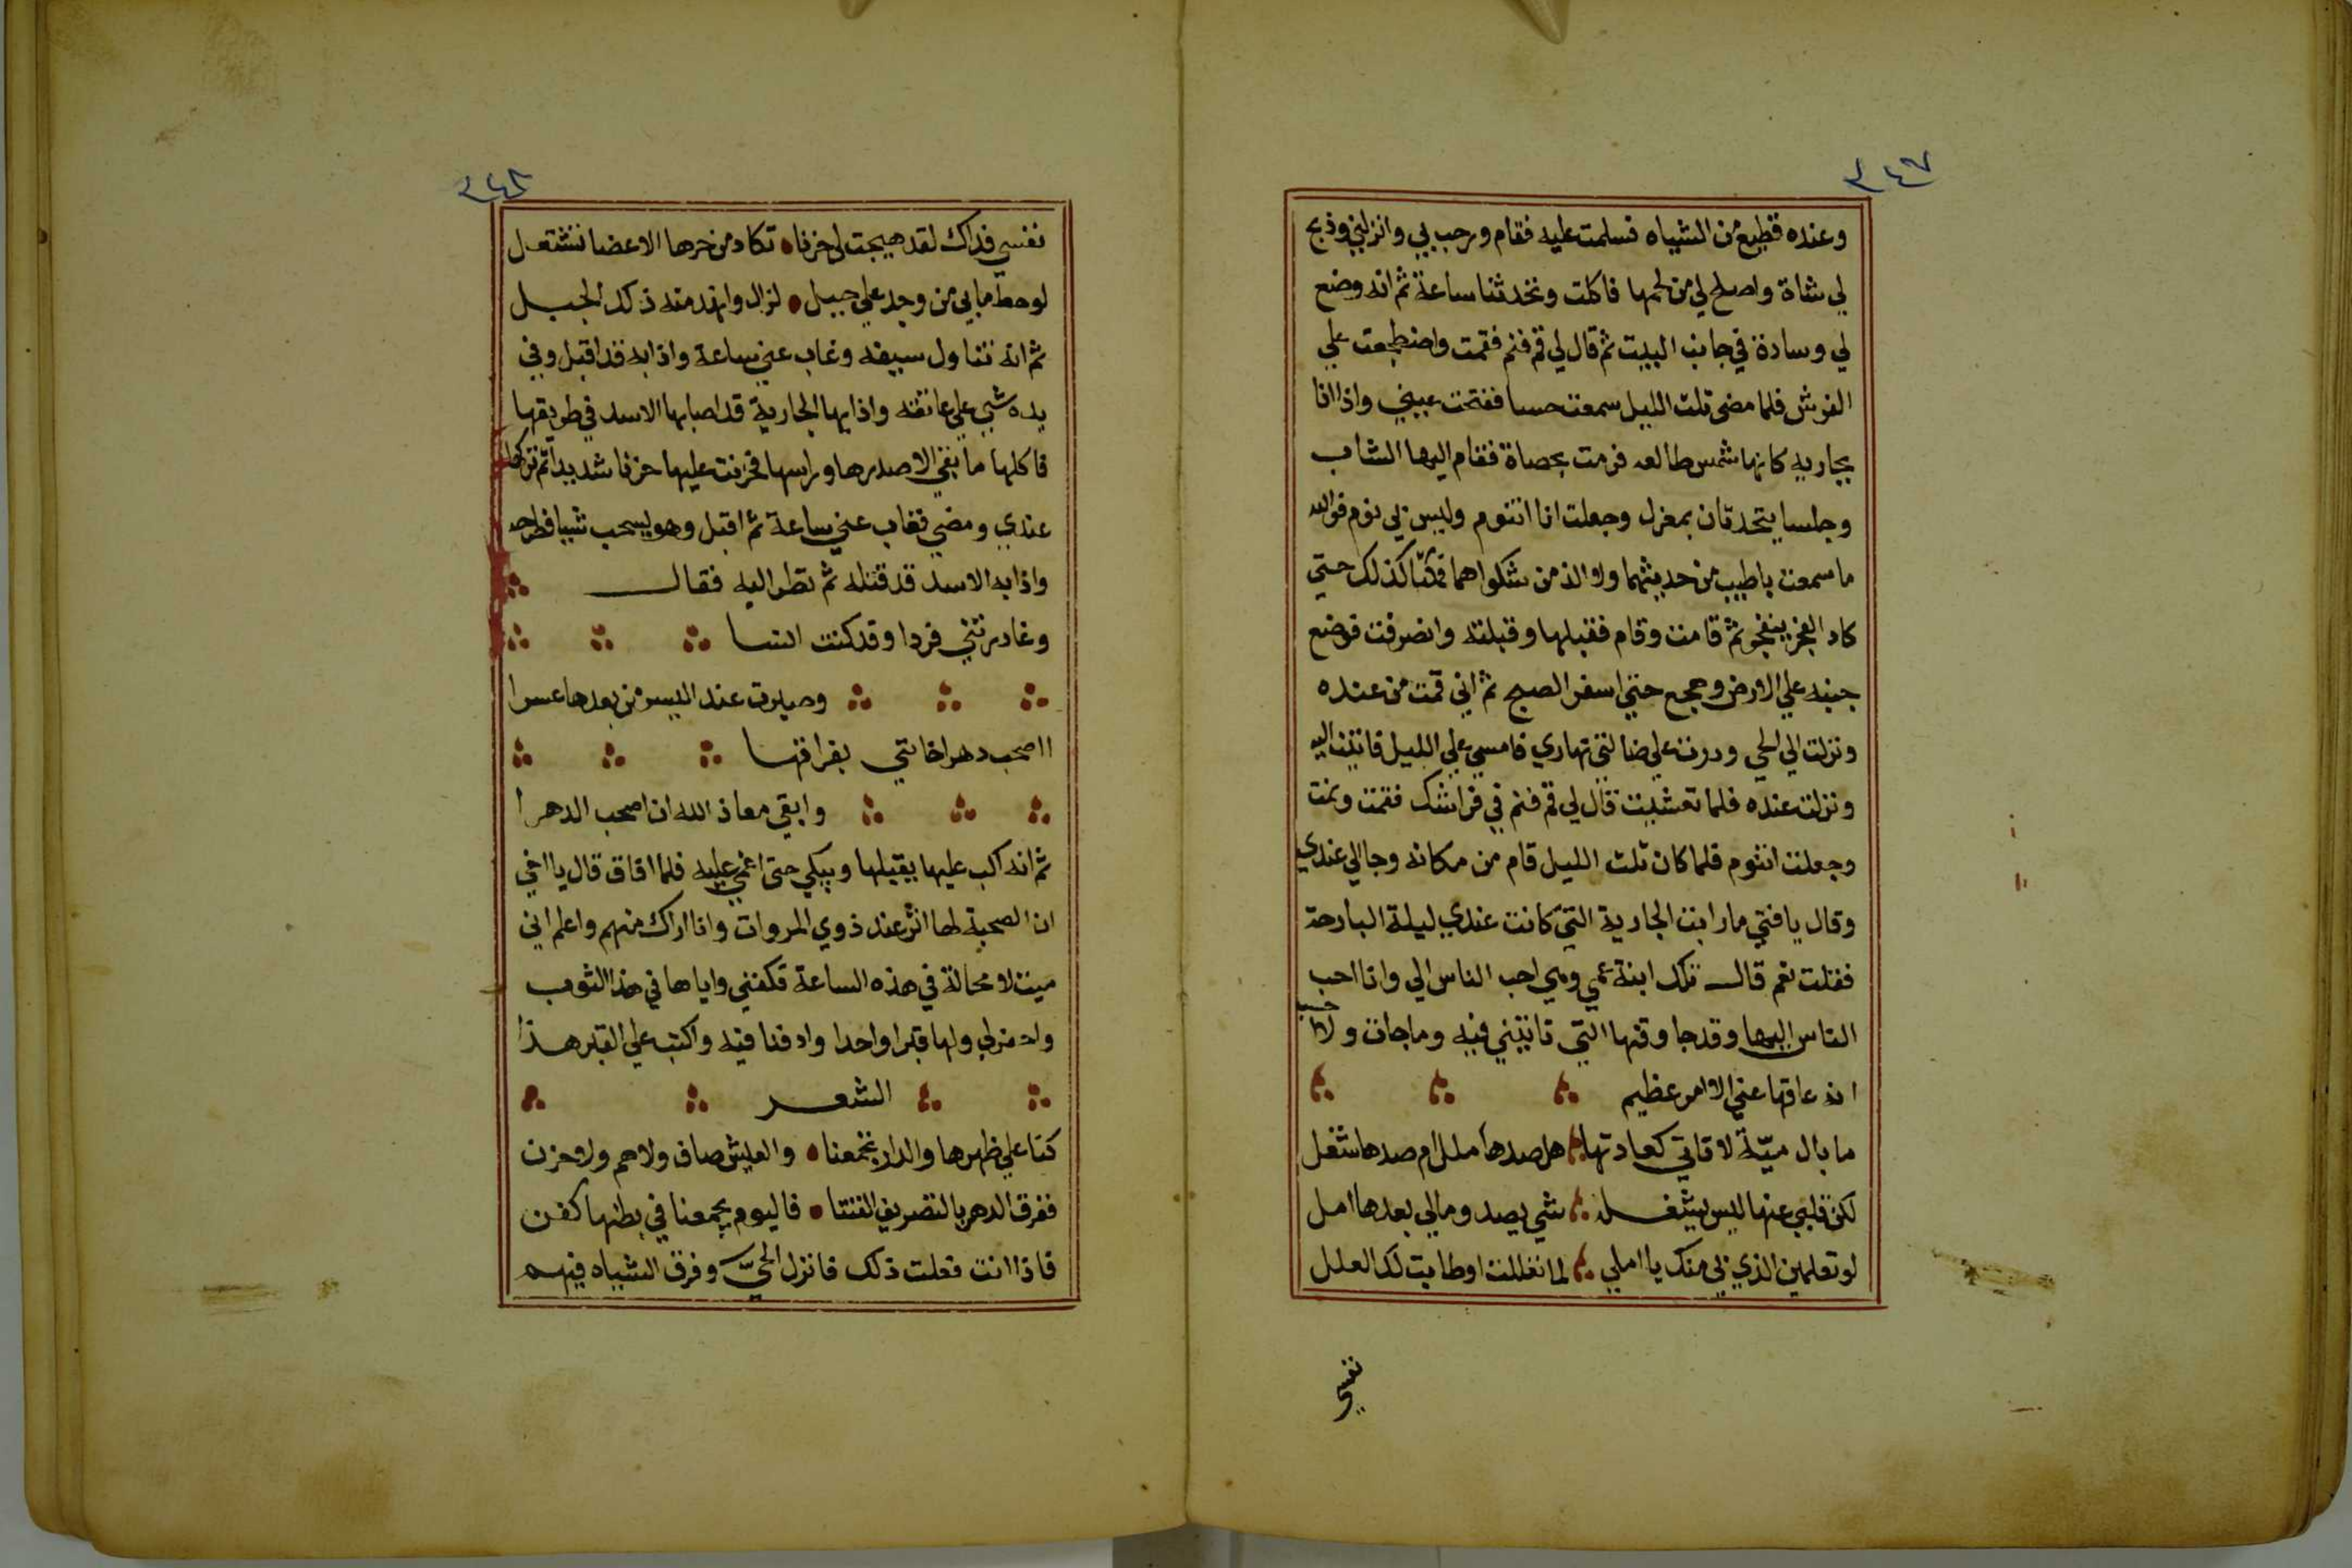 ٣٤٧
وعنده قطيع من الشياه فسلمت عليه فقام ورحب بي وانزلني وذبح
لي شاة واصلح لي من لحمها فاكلت وتحدثنا ساعة ثم انه وضع
لي وسادة في جانب البيت ثم قال لي قم فنم فقمت واضطجعت علي
الفرش فلما مضي ثلث الليل سمعت حسا ففتحت عيني واذا انا
بجاريه كانها شمس طالعه فرمت بحصاة فقام اليها الشاب
وجلسا يتحدثان بمعزل وجعلت انا انتوم وليس بي نوم فوالله
ما سمعت باطيب من حديثهما ولا الذ من شكواهما فكنا كذلك حتي
كاد الفجر ينفجر ثم قامت وقام فقبلها وقبلته وانصرفت فوضع
جنبه علي الارض وهجع حتي اسفر الصبح ثم اني قمت من عنده
ونزلت الي الحي ودرت علي ضالتي نهاري فامسي علي الليل فاتيت اليه
ونزلت عنده فلما تعشيت قال لي قم فنم في فراشك فقمت ونمت
وجعلت انتوم فلما كان ثلث الليل قام من مكانه وجا الي عندي
وقال يا فتي ما رايت الجارية التي كانت عندي ليلة البارحة
فقلت نعم قال تلك ابنة عمي وهي احب الناس الي وانا احب
الناس اليها وقد جا وقتها التي تاتيني فيه وما جات ولا احسب
انه عاقها عني الا امر عظيم
ما بال ميّة لا تاتي كعادتها هل صدها ملل ام صدها شغل
لكن قلبي عنها ليس يشغله شي يصد ومالي بعدها امل
لو تعلمين الذي بي منك يا املي لما تعللت او طابت لك العلل
نفسي
٣٤٨
نفسي فداك لقد هيجت لي حزنا تكاد من حرها الاعضا تشتعل
لو حط ما بي من وجد علي جبل لزال وانهد منه ذلك الجبل
ثم انه تناول سيفه وغاب عني ساعة واذا به قد اقبل وفي
يده شي علي عاتقه واذا بها الجارية قد اصابها الاسد في طريقها
فاكلها ما بقي الا صدرها وراسها فحزنت عليها حزنا شديدا ثم تركها
عندي ومضي فغاب عني ساعة ثم اقبل وهو يسحب شيا فطرحه
واذا به الاسد قد قتله ثم نظر اليه فقال
وغادرتني فردا وقد كنت انسا
وصيرت عند اليسر من بعدها عسرا
ااصحب دهرا خانني بفراقها
وابقي معاذ الله ان اصحب الدهرا
ثم انه اكب عليها يقبلها ويبكي حتي اغمي عليه فلما افاق قال يا اخي
ان الصحبة لها اثر عند ذوي المروات وانا اراك منهم واعلم اني
ميت لا محالة في هذه الساعة فكفني واياها في هذا الثوب
واحفر لي ولها قبرا واحدا وادفنا فيه واكتب علي القبر هذا
الشعر
كنا علي ظهرها والدار تجمعنا والعيش صاف ولا هم ولا حزن
ففرق الدهر بالتصريف الفتنا فاليوم يجمعنا في بطنها كفن
فاذا انت فعلت ذلك فانزل الحيّ وفرق الشياه فيهم